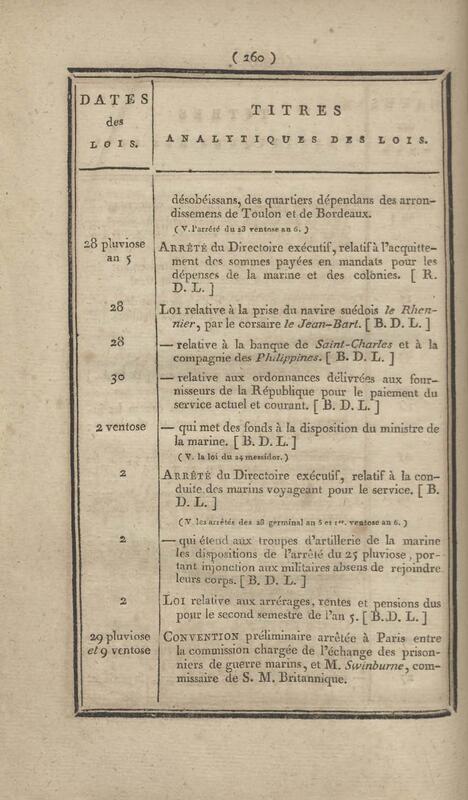 ( 260 )
DATES
des
LOIS.
TITRES
ANALYTIQUES DES LOIS.
désobéissans, des quartiers dépendans des arron-
dissemens de Toulon et de Bordeaux.
( V. l'arrêté du 23 ventose an 6. )
28 pluviose
an 5
ARRÊTÉ du Directoire exécutif, relatif à l'acquitte-
ment des sommes payées en mandats pour les
dépenses de la marine et des colonies. [ R.
D. L. ]
28
LOI relative à la prise du navire suédois le Rhen-
nier, par le corsaire le Jean-Bart. [ B. D. L. ]
28
— relative à la banque de Saint-Charles et à la
compagnie des Philippines. [ B. D. L. ]
30
— relative aux ordonnances délivrées aux four-
nisseurs de la République pour le paiement du
service actuel et courant. [ B. D. L. ]
2 ventose
— qui met des fonds à la disposition du ministre de
la marine. [ B. D. L. ]
( V. la loi du 24 messidor. )
2
ARRÊTÉ du Directoire exécutif, relatif à la con-
duite des marins voyageant pour le service. [ B.
D. L. ]
( V. les arrêtés des 28 germinal an 5 et 1er. ventose an 6. )
2
— qui étend aux troupes d'artillerie de la marine
les dispositions de l'arrêté du 25 pluviose, por-
tant injonction aux militaires absens de rejoindre
leurs corps. [ B. D. L. ]
2
LOI relative aux arrérages, rentes et pensions dus
pour le second semestre de l'an 5. [ B.D. L. ]
29 pluviose
et 9 ventose
CONVENTION préliminaire arrêtée à Paris entre
la commission chargée de l'échange des prison-
niers de guerre marins, et M. Swinburne, com-
missaire de S. M. Britannique.